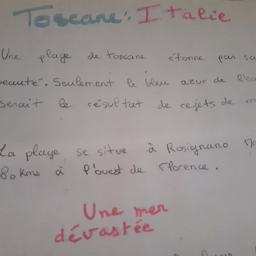 Toscane: Italie
Une plage de toscane étonne par sa
beauté. Seulement le bleu azur de l'eau
serait le résultat de rejets de
La plage se situe à Rosignano
80 kms à l'ouest de Florence.
Une mer
dévastée